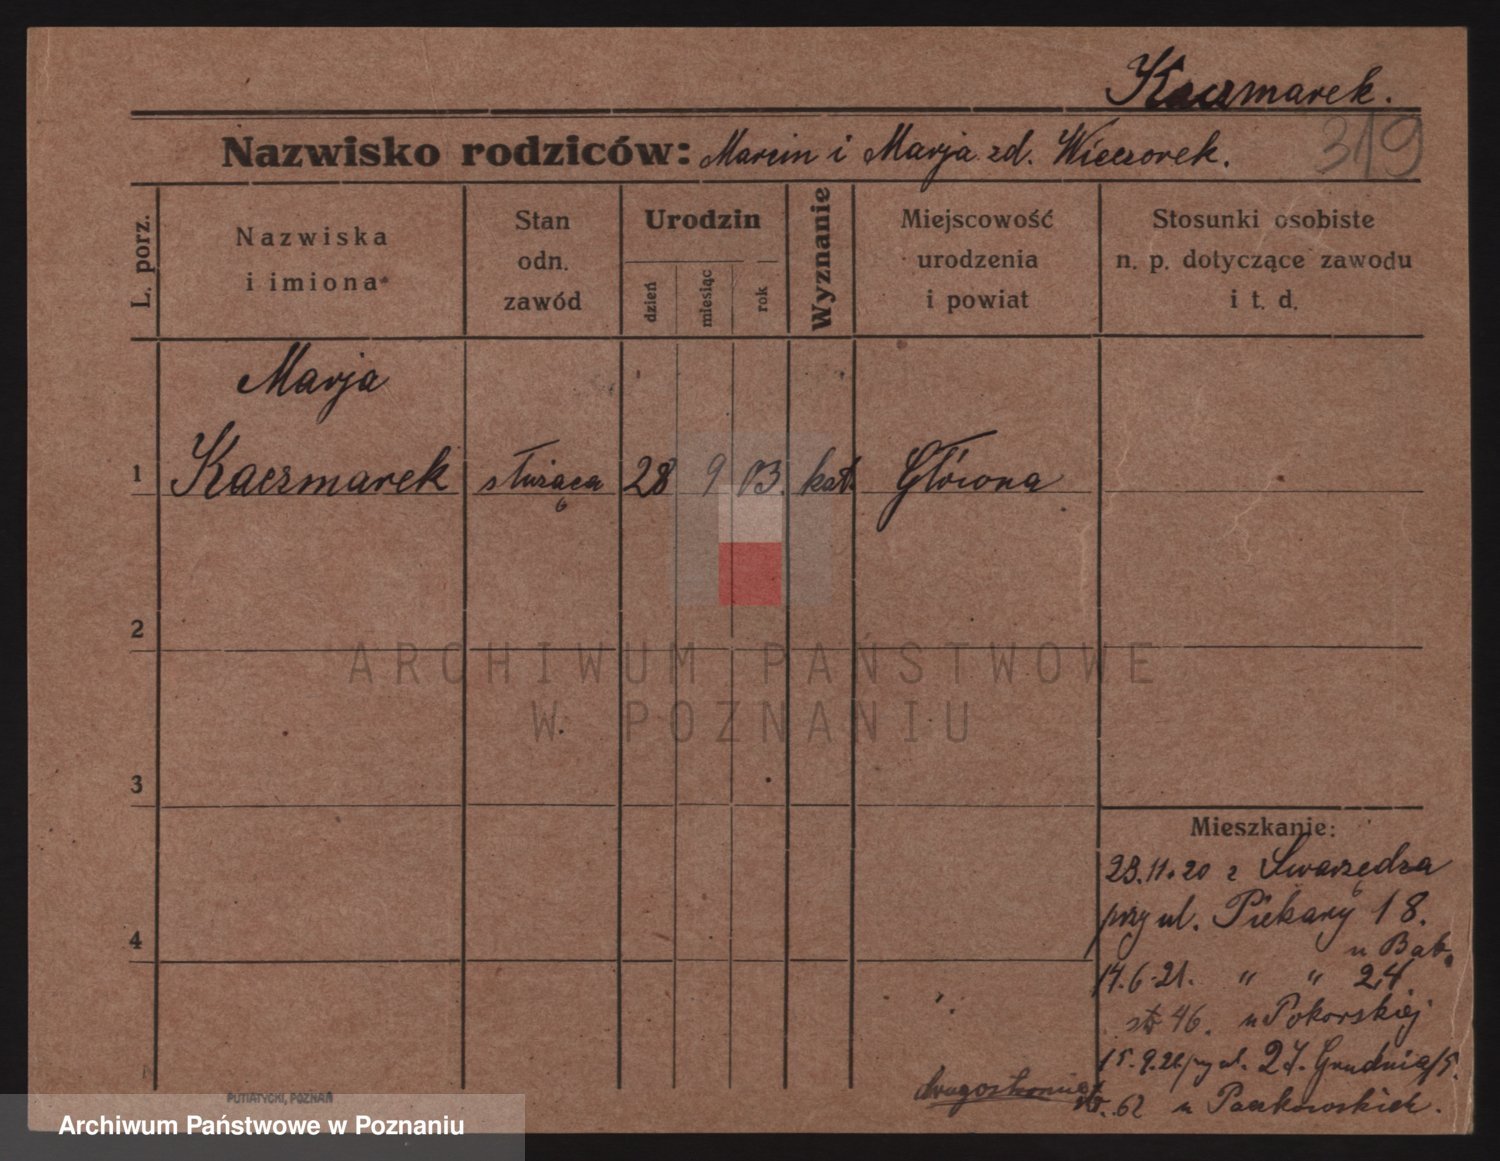 Kaczmarek.
319
Nazwisko rodziców: Marcin i Marja zd. Wieczorek.
L. porz.
Nazwiska
i imiona
Stan
odn.
zawód
Urodzin
dzień
miesiąc
rok
Wyznanie
Miejscowość
urodzenia
i powiat
Stosunki osobiste
n. p. dotyczące zawodu
i t. d.
Marja
1 Kaczmarek służąca 28 9 03. kat. Główna
2
ARCHIWUM PAŃSTWOWE
W POZNANIU
3
Mieszkanie:
23.11.20 z Swarzędza
przy ul. Piekary 18.
4
u Bab.
14.6.21. " " 24
str 46. u Pokorskiej
15.9.21 przy ul. 27. Grudnia 5.
drugostronnie
str. 62 u Paczkowskich.
PUTIATYCKI, POZNAŃ
Archiwum Państwowe w Poznaniu